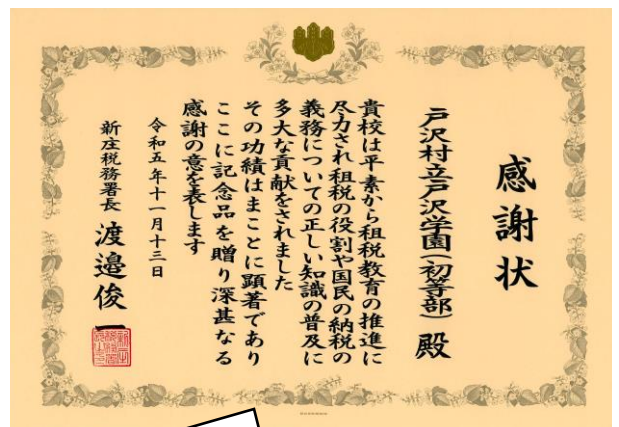 感謝状
戸沢村立戸沢学園(初等部) 殿
貴校は平素から租税教育の推進に
尽力され租税の役割や国民の納税の
義務についての正しい知識の普及に
多大な貢献をされました
その功績はまことに顕著であり
ここに記念品を贈り深甚なる
感謝の意を表します
令和五年十一月十三日
新庄税務署長 渡邉俊一